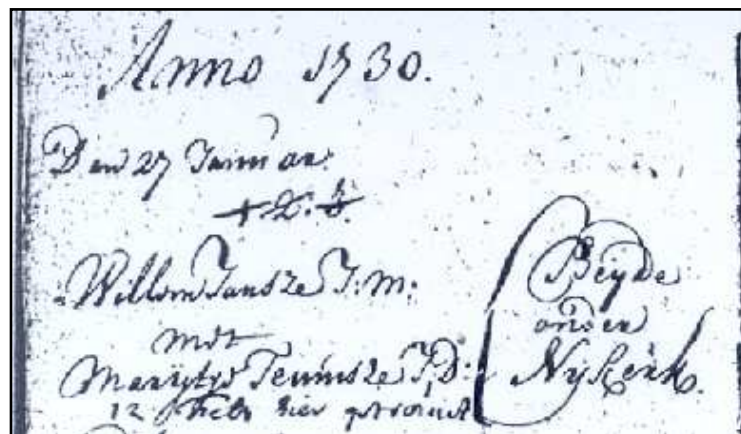 Anno 1730.
Den 27 Januar:
+ 2. 3.
Willem Jansze J: M:
met
Marrytje Teunisze J: D:
12 Febr hier getrouwt
Beyde
onder
Nykerk.